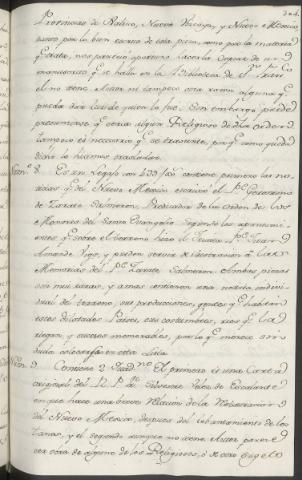 Provincias de Nabico, Nueva Vizcaya, y Nuevo Mexico
tanto por lo bien escrito de esta pieza, como por la materia
q.e trata, nos parecio oportuno sacarla. Copiase de un
manuscripto q.e se halla en la Biblioteca de S.n Fran.co
el no tiene Autor ni tampoco otra razon alguna q.e
pueda dar luz de quien lo fue. Sin embargo puede
presumirse q.e seria algun Religioso de dha orden
tampoco es necesario q.e se trasunte, porq.e como queda
dicho lo hizimos trasladar.
Num.o 8. Es un legajo con 200 foxas contiene primero las no-
ticias q.e del Nuevo Mexico escrivió el P.e Geronimo
de Zarate Salmeron, Predicador de la orden de los
Menores del Santo Evangelio. Siguense los apuntami-
entos q.e sobre el terreno hizo el Fr. Juan
Amando Niel, y pueden servir de ilustracion á las
Memorias del P.e Zarate Salmeron. Ambas piezas
son muy raras, y ambas contienen una noticia indivi-
dual del terreno, sus producciones, gentes q.e habitan
estos dilatados Paises, sus costumbres, rios q.e la
riegan, y sucesos memorables, por lo q.e merece sin
duda colocarse en esta lista.
Num.o 9. Contiene 2 Quad.nos El primero es una Carta
original del R. P. Fr. Silvestre Velez de Escalante
en que hace una breve Relacion de la
del Nuevo Mexico, despues del levantamiento de los
tanos, y el segundo aunque no tiene Autor parece
ser obra de alguno de los Religiosos, ó de otro sugeto